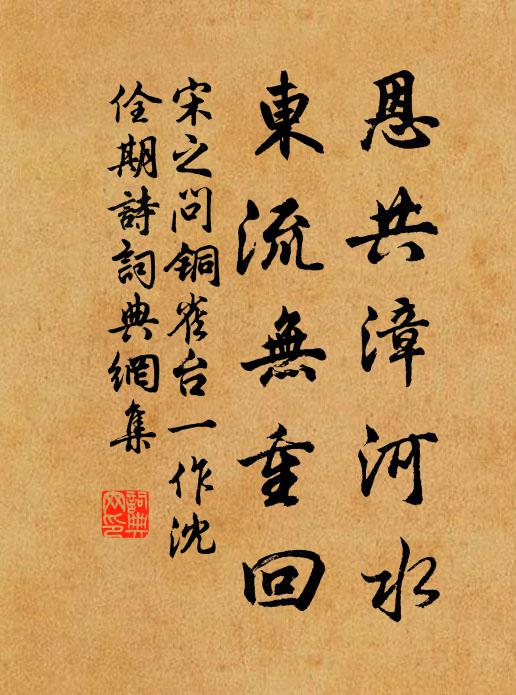 恩共漳河水
東流無重回
宋之问铜雀台一作沈
佺期詩詞典網集
詞典網印